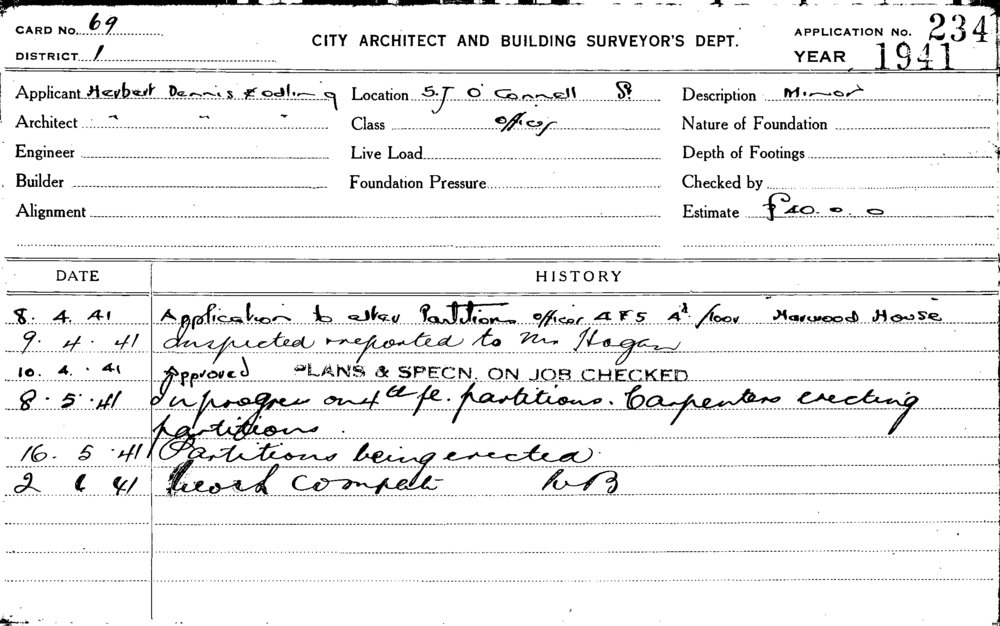 CARD No. 69
DISTRICT 1
CITY ARCHITECT AND BUILDING SURVEYOR'S DEPT.
APPLICATION No. 234
YEAR 1941
Applicant Herbert Dennis Location 5.7 O'Connell St. Description Minor
Architect " " " Class offices Nature of Foundation
Engineer Live Load Depth of Footings
Builder Foundation Pressure Checked by
Alignment Estimate £40. 0. 0
DATE HISTORY
8. 4. 41 Application to alter Partitions offices 4 & 5 4th floor Harwood House
9. 4. 41 Inspected & reported to Mr Hogan
10. 4. 41 Approved PLANS & SPECN. ON JOB CHECKED
8. 5. 41 In progress on 4th fl. partitions. Carpenters erecting
partitions.
16. 5. 41 Partitions being erected
2 6 41 Work complete